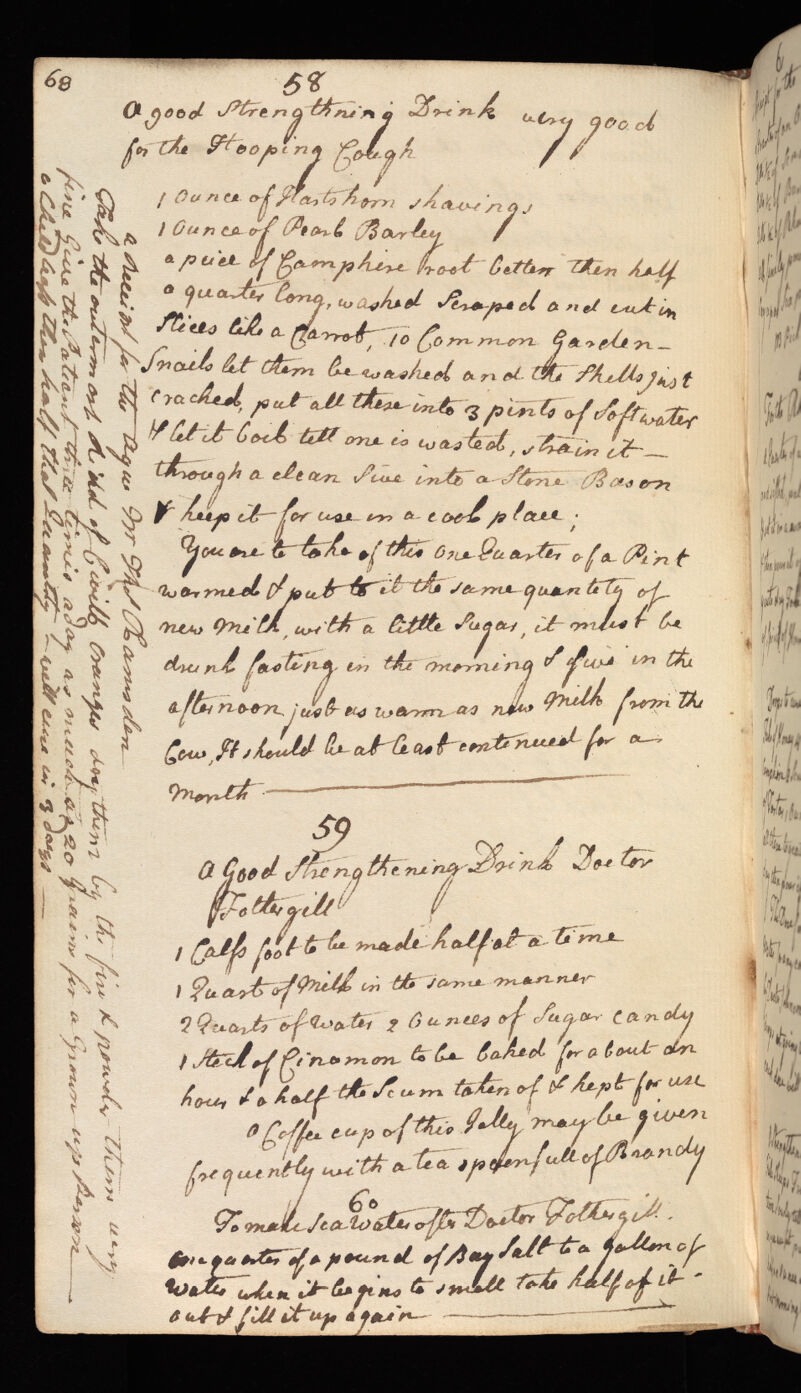 68
58
A good Strengthning Drink very good
for the Hooping Cough
1 Ounce of Hartshorn shavings
1 Ounce of Pearl Barley
a peice of Camphire root better then half
a quarter long, washed Scraped and cut in
Slices like a Carrot, 10 Common Garden-
Snails let them be washed and the Shells just
cracked, put all these into 3 pints of Soft water
& let it boil tell one is wasted, strain it -
through a clean Sive into a Stone Bason
& keep it for use in a cool place;
You are to take of this One Quarter of a Pint
warmed & put to it the same quantity of
new Milk, with a little Sugar, it must be
drunk fasting in the morning & five in the
afternoon just as warm as new Milk from the
Cow, It should be at least continued for a
Month
59
A Good Strengthening Drink Doctor
Fothergill
1 Calfs foot to be made half at a time
1 Quart of Milk in the same manner
2 Quarts of Water 2 Ounces of Sugar candy
1 Stick of Cinamon to be baked for about an
hour & a half the Scum taken of & kept for use
a Coffee cup of this Jelly may be given
frequently with a tea spoonfull of Brandy
60
To make Sea Water after Doctor Fothergill.
One quarter of a pound of Bay Salt to a gallon of
Water when it begins to smell take half of it -
out & fill it up again
a Receipt for the Ague Mr Thos Ramsden
Take the outermost Rind of Civill oranges dry them by the fire & powder them very
fine Give the Patiant three times a day as much as 20 Grains for a Grown up Person
a Child less then half that Quantity - will cure in 3 days